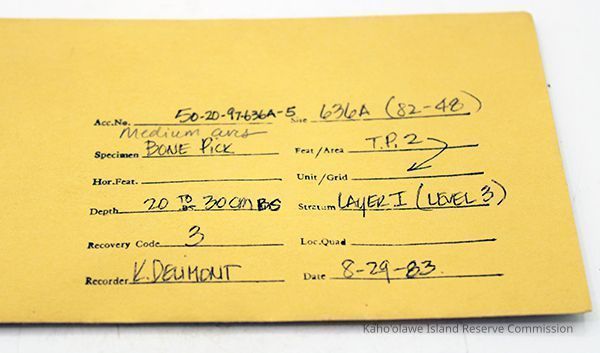 Acc.No. 50-20-97-636A-5 Site 636A (82-48)
Medium avis
Specimen BONE PICK Feat/Area T.P. 2
Hor.Feat. Unit/Grid
Depth 20 TO 30 CM BS Stratum LAYER I (LEVEL 3)
Recovery Code 3 Loc.Quad
Recorder K. DELIMONT Date 8-29-83
Kaho'olawe Island Reserve Commission